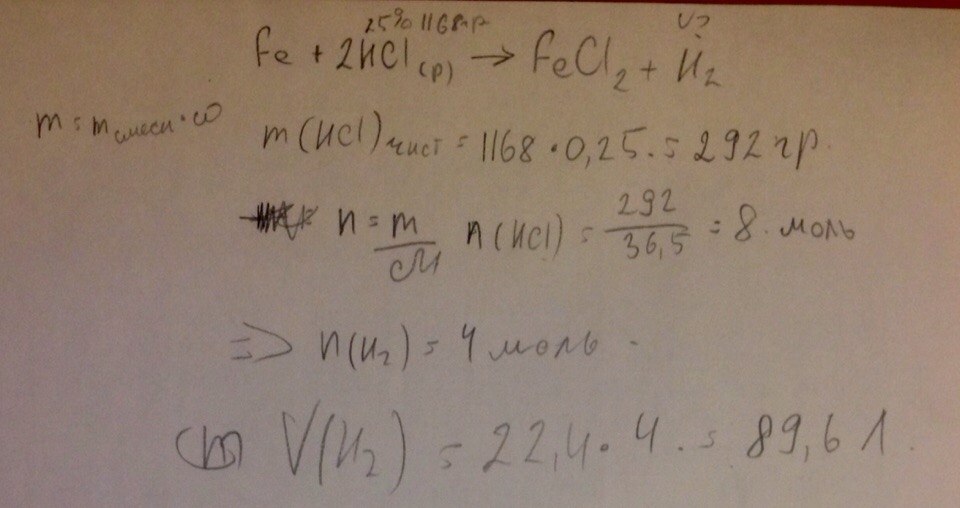 25% 1168 гр. V-?
Fe + 2HCl (р) → FeCl₂ + H₂
m = m смеси · ω
m(HCl) чист = 1168 · 0,25. = 292 гр.
n = m/M n(HCl) = 292/36,5 = 8. моль
=> n(H₂) = 4 моль.
V(H₂) = 22,4 · 4. = 89,6 л.